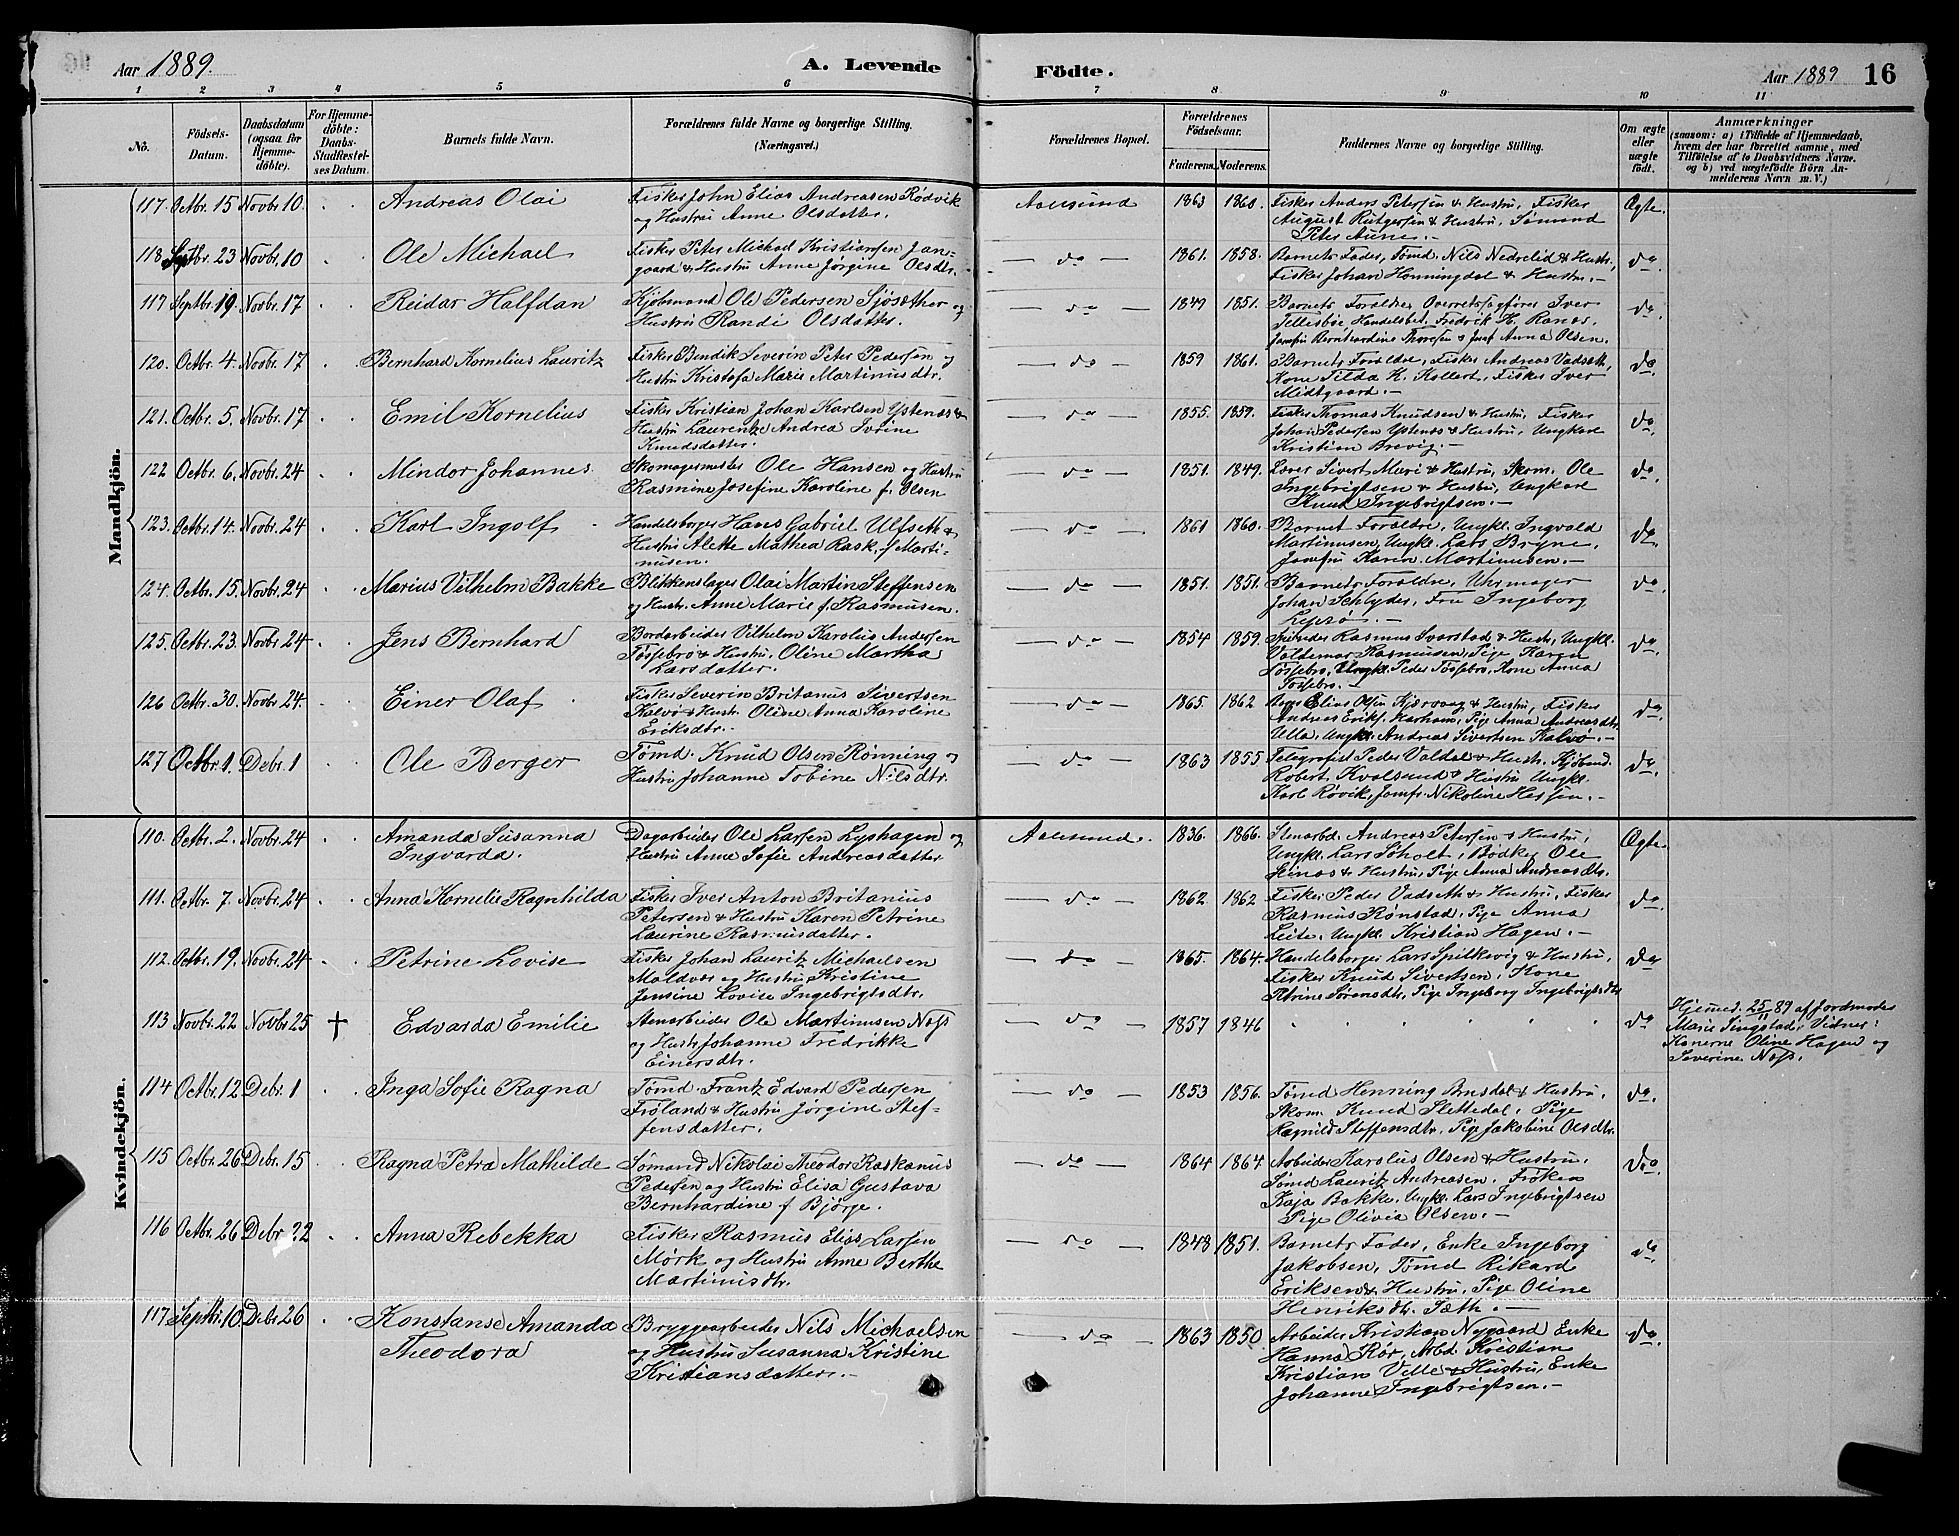 Aar 1889.
A. Levende Födte.
Aar 1889
16
1 2 3 4 5 6 7 8 9 10 11
No.
Födsels-Datum.
Daabsdatum (ogsaa for Hjemme-döbte).
For Hjemme-döbte: Daabs-Stadfæstel-ses Datum.
Barnets fulde Navn.
Forældrenes fulde Navne og borgerlige Stilling.
(Næringsvei.)
Forældrenes Bopæl.
Forældrenes Födselsaar.
Faderens. Moderens.
Faddernes Navne og borgerlige Stilling.
Om ægte eller uægte födt.
Anmærkninger
(saasom: a) i Tilfælde af Hjemmedaab,
hvem der har forrettet samme, med
Tilföielse af to Daabsvidners Navne.
og b) ved uægtefödte Börn An-
melderens Navn m. V.)
Mandkjön.
117. Octbr. 15 Novbr. 10. Andreas Olai
Fisker John Elias Andreasen Rødvik
og Hustru Anne Olsdatter.
Aalesund 1863 1860.
Fisker Anders Petersen & Hustru, Fisker
August Rütgersen & Hustru, Sømand
Peter Aune.
Ægte.
118 Septbr. 23 Novbr. 10 Ole Michael
Fisker Peter Michael Kristiansen Jan-
gaard & Hustru Anne Jørgine Olsdtr.
do 1861. 1858.
Barnets Fader, Tømd. Nils Nedrelid & Hustr,
Fisker Johan Honningdal & Hustru.
do.
117 Septbr. 19. Novbr. 17 Reidar Halfdan
Kjøbmand Ole Pedersen Sjøsæther og
Hustru Randi Olsdatter.
do 1849 1851.
Barnets Forældre, Overretssagfører Iver
Tellesbøe, Handelsbet. Fredrik H. Ranos,
Jomfru Bernhardine Thoresen & Jomf Anna Olsen.
do.
120. Octbr. 4. Novbr. 17 Bernhard Kornelius Lauritz
Fisker Bendik Severin Peter Pedersen og
Hustru Kristofa Marie Martinusdtr.
do 1859 1861.
Barnets Forældre, Fisker Andreas Vadseth,
Kone Tilda K. Kollert, Fisker Iver
Midtgaard.
do.
121. Octbr. 5. Novbr. 17 Emil Kornelius
Fisker Kristian Johan Karlsen Ystenæs &
Hustru Laurentze Andrea Ivrine
Knudsdatter.
do 1855. 1859.
Fisker Thomas Knudsen & Hustru, Fisker
Johan Pedersen Ystenæs & Hustru, Ungkarl
Kristian Brevig.
do.
122 Octbr. 6. Novbr. 24 Mindor Johannes
Skomagermester Ole Hansen og Hustru
Rasmine Josefine Karoline f. Olsen
do 1851. 1849.
Sivert Møri & Hustru, Skom. Ole
Ingebrigtsen & Hustru, Ungkarl
Knud Ingebrigtsen.
do.
123. Octbr. 14. Novbr. 24 Karl Ingolf
Handelsborger Hans Gabriel Ulfseth &
Hustru Alette Mathea Rask, f Marti-
nusen.
do 1861 1860.
Barnets Forældre, Ungkl. Ingvald
Martinusen, Ungkl. Lars Bryne,
Jomfru Karen Martinusen.
do.
124. Octbr. 15. Novbr. 24 Marius Vilhelm Bakke
Blikkenslager Olai Martin Steffensen
og Hustr. Anne Marie f. Rasmusen.
do 1851. 1851.
Barnets Forældre, Uhrmager
Johan Schlyder, Fru Ingeborg
Lepsø.
do.
125. Octbr. 23. Novbr. 24 Jens Bernhard
Bordarbeider Vilhelm Karolus Andersen
Fossebro & Hustru, Oline Martha
Larsdatter.
do 1854 1859.
Rasmus Svorstad & Hustr, Ungkl.
Valdemar Rasmusen, Pige Karen
Fossebro, Ungkl. Peder Fossebro, Kone Anna
Fossebro.
do.
126 Octbr. 30. Novbr. 24. Einer Olaf
Fisker Severin Britanus Sivertsen
Kalvø & Hustr. Oline Anna Karoline
Eriksdtr.
do 1865. 1862
Elias Olsen Kjærvaag & Hustru, Fisker
Andreas Eriks. Harham, Pige Anna Andreasdtr.
Ulla, Ungkl. Andreas Sivertsen Kalvø.
do.
127 Octbr. 1. Debr. 1 Ole Berger
Tømd. Knud Olsen Rønning og
Hustru Johanne Tobine Nilsdtr.
do 1863 1855
Telegrafist Peder Valdal & Hustr. Kjøbmd.
Robert Kvalsund & Hustru Ungkl.
Karl Røvik, Jomfr. Nikoline Hessen.
do.
Kvindekjön.
110. Octbr. 2. Novbr. 24 Amanda Susanna
Ingvarda.
Dagarbeider Ole Larsen Lyshagen og
Hustru Anna Sofie Andreasdatter
Aalesund. 1836. 1866.
Stenarbd. Andreas Petersen & Hustru,
Ungkl. Lars Søholt, Bødker Ole
& Hustru, Pige Anna Andreasdtr.
Ægte.
111. Octbr. 7. Novbr. 24 Anna Kornelie Ragnhilda
Fisker Iver Anton Britanius
Petersen & Hustru Karen Petrine
Laurine Rasmusdatter.
do 1862. 1862
Fisker Peder Vadseth & Hustru, Fisker
Rasmus Rønstad, Pige Anna
Leite, Ungkl. Kristian Hagen.
do.
112. Octbr. 19. Novbr. 24 Petrine Lovise
Fisker Johan Lauritz Michaelsen
Moldvær og Hustru Kristine
Jensine Lovise Ingebrigtsdtr.
do 1865. 1864.
Handelsborger Lars Spilkevig & Hustru,
Fisker Knud Sivertsen, Kone
Petrine Sørensdtr, Pige Ingeborg Ingebrigtsdtr
do
113 Novbr. 22 Novbr 25 † Edvarda Emilie
Stenarbeider Ole Martinusen Næss
og Hustr Johanne Fredrikke
Einersdtr.
do 1857 1846
do
Hjemmed. 25/11 89 af Jordmoder
Marie Singstad, Vidner:
Konerne Oline Hagen og
Severine Næss.
114 Octbr. 12 Debr. 1 Inga Sofie Ragna
Tømd. Frantz Edvard Pedersen
Frøland & Hustru Jørgine Stef-
fensdatter.
do 1853 1856.
Tømd Henning Arnsdal & Hustru,
Skom. Knud Slettedal, Pige
Ragnild Steffensdtr. Pige Jakobine Olsdtr.
do.
115 Octbr. 26 Debr. 15 Ragna Petra Mathilde
Sømand Nikolai Theodor Raskanus
Pedersen og Hustru Elisa Gustava
Bernhardine f Bjørge.
do 1864 1864
Arbeider Karolus Olsen & Hustru,
Sømd Lauritz Andreasen, Frøken
Kaja Bakke, Ungkl. Lars Ingebrigtsen
Pige Olivia Olsen.
do.
116 Octbr. 26 Debr 22 Anna Rebekka
Fisker Rasmus Elias Larsen
Mørk og Hustru Anne Berthe
Martinusdtr.
do 1848 1851.
Barnets Fader, Enke Ingeborg
Jakobsen, Tømd Rikard
Eriksen & Hustru, Pige Oline
Henriksdtr. Sæth.
do
117 Septbr. 10 Debr 26 Konstanse Amanda
Theodora
Bryggearbeider Nils Michaelsen
og Hustru Susanna Kristine
Kristiansdatter.
do 1863 1850
Arbeider Kristian Nygaard, Enke
Hanna Rør, Arbd. Kristian
Kristian Ville & Hustru, Enke
Johanne Ingebrigtsen.
do.